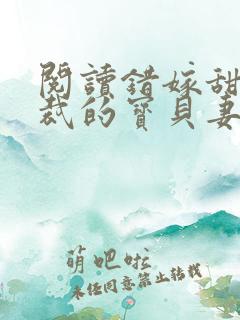 閱讀錯嫁甜
裁的寶貝妻
萌吧啦
未经同意禁止转载